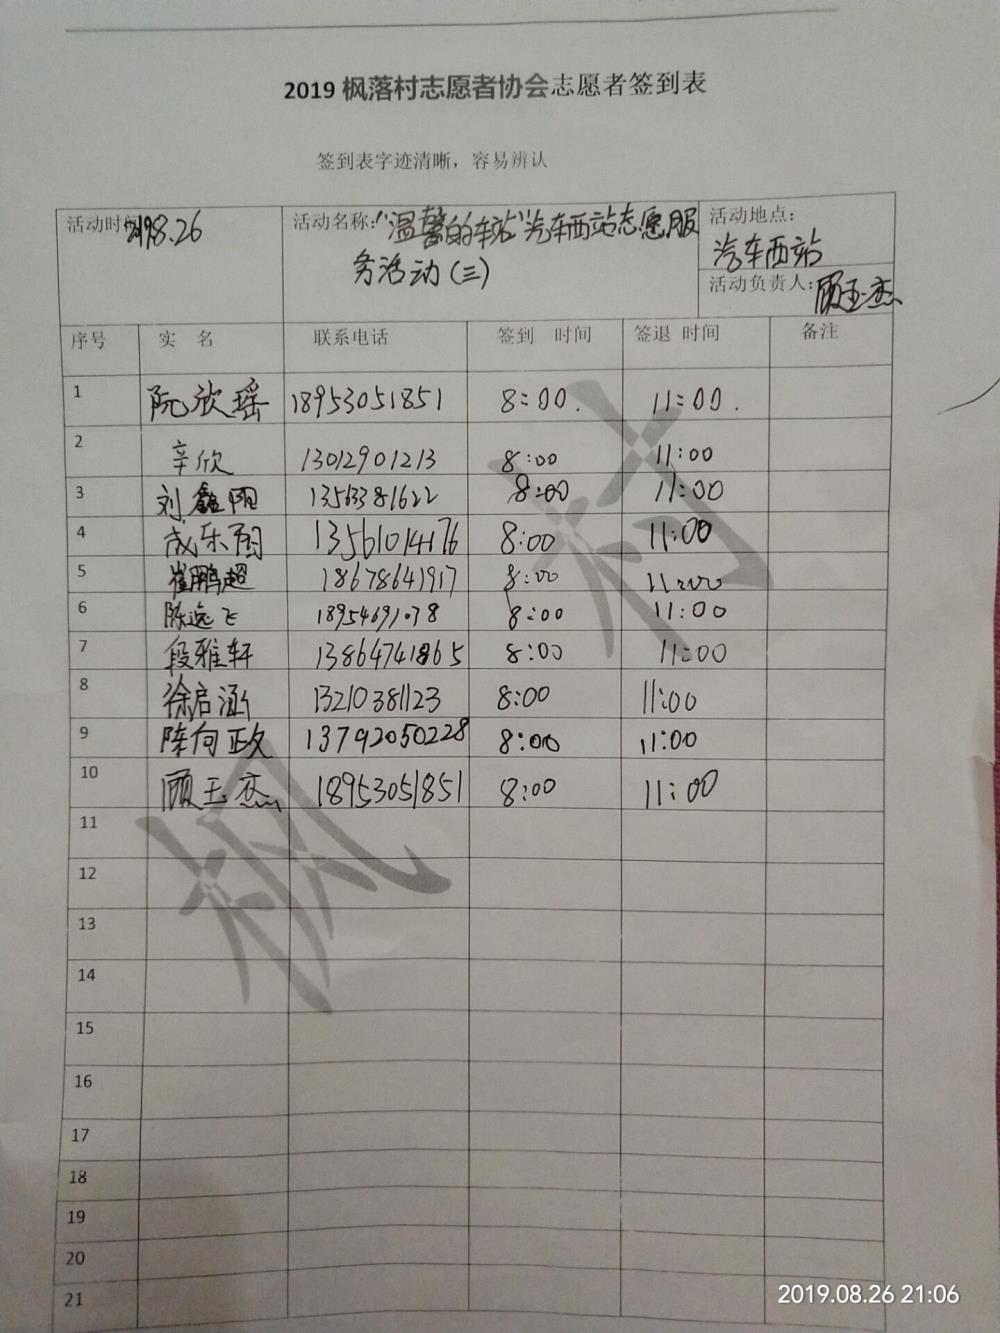 2019 枫落村志愿者协会志愿者签到表
签到表字迹清晰，容易辨认
活动时间 2019.8.26 活动名称:"温馨的车站"汽车西站志愿服
务活动(三)
活动地点:
汽车西站
活动负责人:顾玉杰
序号 实 名 联系电话 签到 时间 签退 时间 备注
1 阮欣瑶 18953051851 8:00. 11:00.
2 辛欣 13012901213 8:00 11:00
3 刘鑫阳 13563381622 8:00 11:00
4 成乐雨 13561014176 8:00 11:00
5 崔鹏超 18678641917 8:00 11:00
6 陈逸飞 18954691038 8:00 11:00
7 段雅轩 13864741865 8:00 11:00
8 徐启涵 13210381123 8:00 11:00
9 陈向政 13792050228 8:00 11:00
10 顾玉杰 18953051851 8:00 11:00
11
12
13
14
15
16
17
18
19
20
21
枫
村
2019.08.26 21:06